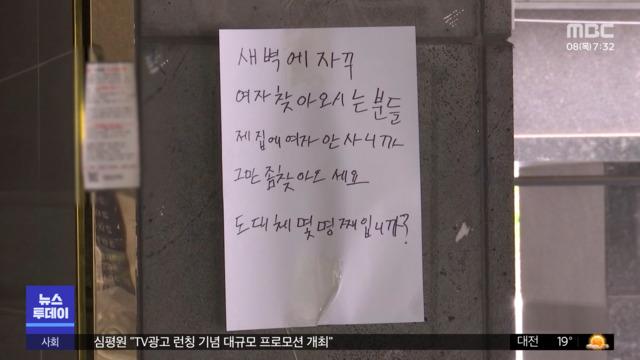 MBC
08(목) 7:32
새벽에 자꾸
여자 찾아오시는 분들
제 집에 여자 안 사니까
그만 좀 찾아오세요
도대체 몇 명째입니까?
뉴스
투데이
사회
심평원 "TV광고 런칭 기념 대규모 프로모션 개최"
대전 19°